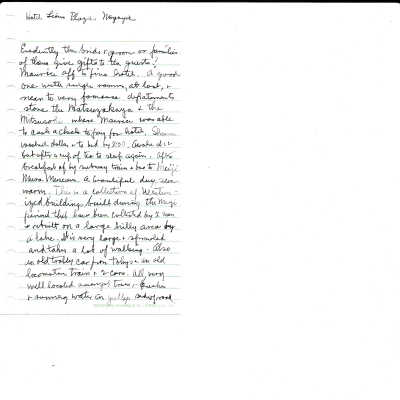 Hotel Plaza, Nagoya
Evidently the bride & groom or families
of them give gifts to the guests!
Maurice off to find hotel. A good
one with single rooms, at last, &
near to very famous department
store the Matsuzakaya & the
Mitsu where Maurice was able
to cash a check to pay for hotel.
washed clothes & to bed by Awake at
but after a cup of tea to sleep again. After
breakfast off by subway train & bus to Meiji
Mura Museum. A beautiful day,
warm. This is a collection of Western-
ized buildings built during the Meiji
period that have been collected by a man
& rebuilt on a large hilly area by
a lake. It is very large & spreaded
and takes a lot of walking. Also
an old trolley car from Tokyo & an old
locomotive train & 2 cars. All very
well located amongst trees,
& running water in end of road